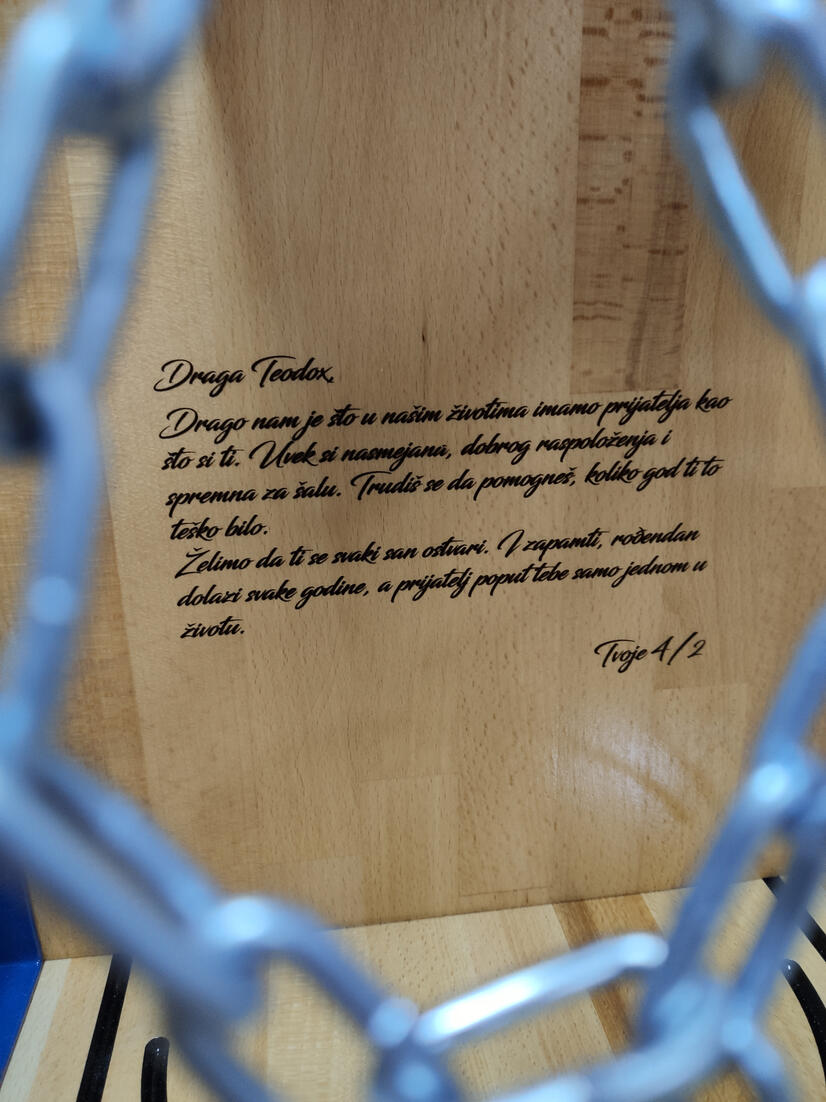 Draga Teodox,
Drago nam je što u našim životima imamo prijatelja kao
što si ti. Uvek si nasmejana, dobrog raspoloženja i
spremna za šalu. Trudiš se da pomogneš, koliko god ti to
teško bilo.
Želimo da ti se svaki san ostvari. I zapamti, rođendan
dolazi svake godine, a prijatelj poput tebe samo jednom u
životu.
Tvoje 4/2